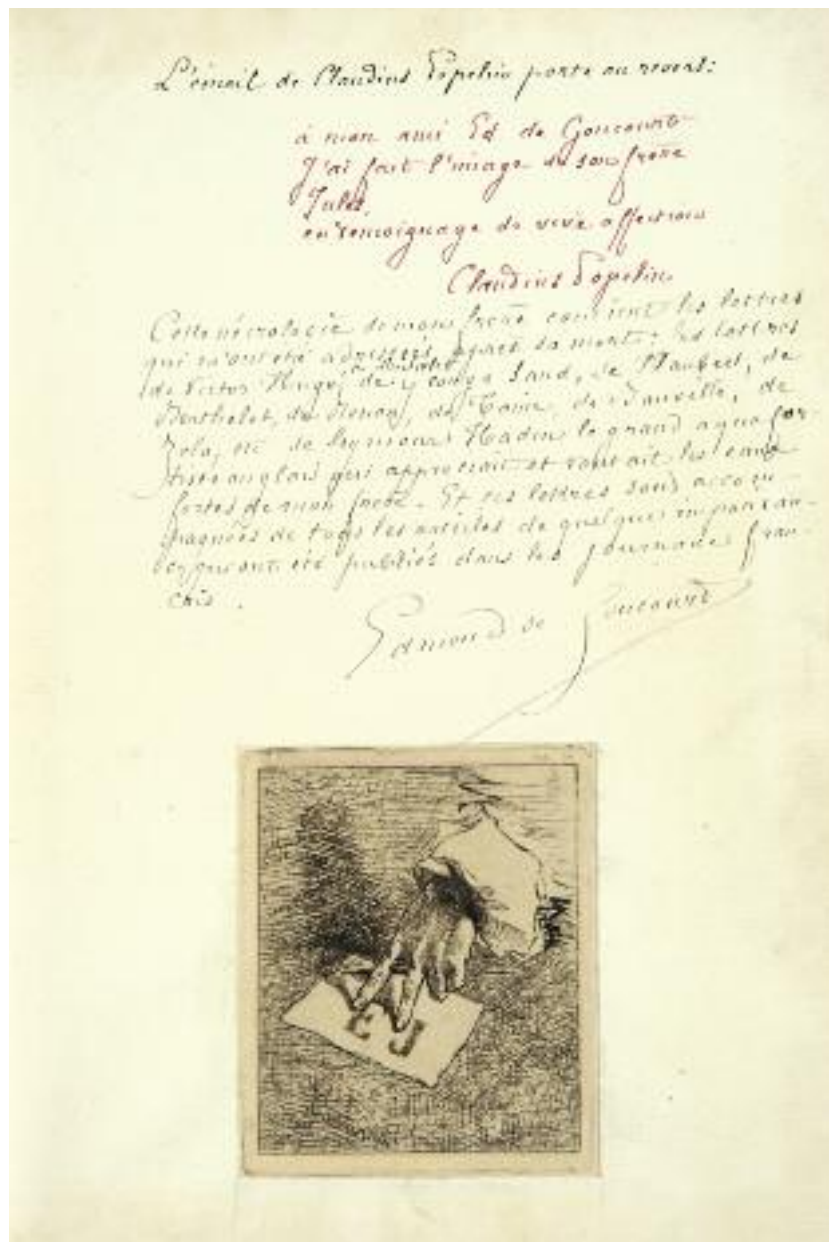 L'émail de Claudius Popelin porte au revers:
à mon ami Ed de Goncourt
J'ai fait l'image de son frère
Jules,
en témoignage de vive affection
Claudius Popelin
Cette nécrologie de mon frère contient les lettres
qui m'ont été adressées après sa mort: les lettres
de Victor Hugo, de George Sand, de Flaubert, de
Berthelot, de Renan, de Taine, de Banville, de
Zola, etc de Seymour Haden le grand aquafor-
tiste anglais qui appréciait et vantait les eaux
fortes de mon frère. Et ces lettres sont accom-
pagnées de tous les articles de quelque importan-
ce, qui ont été publiés dans les journaux fran-
çais.
Edmond de Goncourt
E J